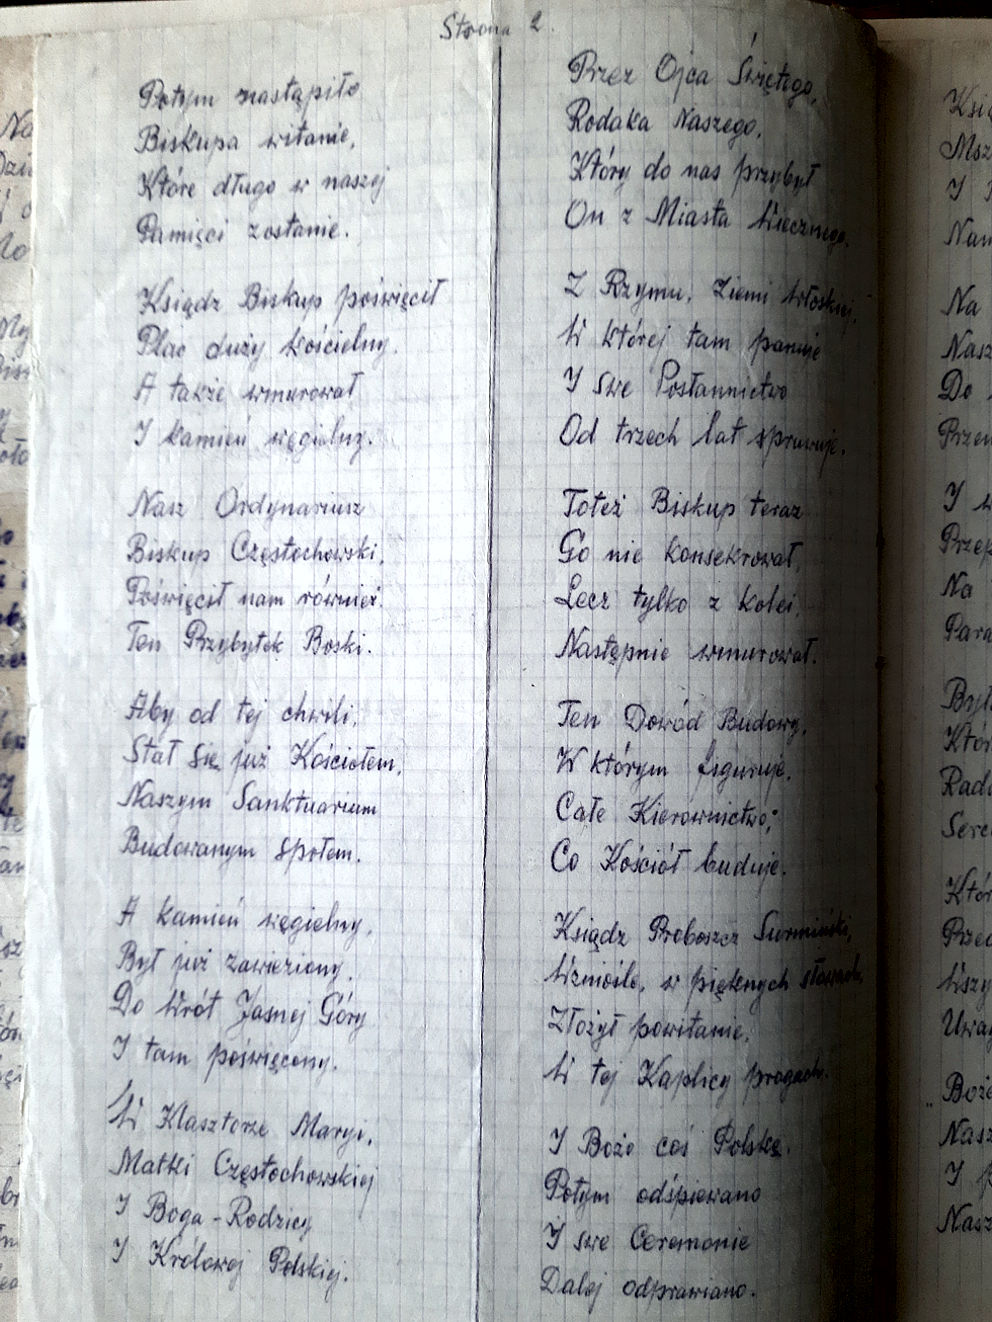 Strona 2.
Potym nastąpiło
Biskupa witanie,
Które długo w naszej
Pamięci zostanie.
Ksiądz Biskup poświęcił
Plac duży kościelny.
A także wmurował
I kamień węgielny.
Nasz Ordynariusz
Biskup Częstochowski,
Poświęcił nam również.
Ten Przybytek Boski.
Aby od tej chwili,
Stał się już Kościołem,
Naszym Sanktuarium
Budowanym społem.
A kamień węgielny,
Był już zawieziony,
Do Wrót Jasnej Góry
I tam poświęcony.
W Klasztorze Maryi,
Matki Częstochowskiej
I Boga-Rodzicy
I Królowej Polskiej.
Przez Ojca Świętego,
Rodaka Naszego,
Który do nas przybył
On z Miasta Wiecznego.
Z Rzymu, Ziemi Włoskiej,
W której tam panuje
I swe Posłannictwo
Od trzech lat sprawuje.
Toteż Biskup teraz
Go nie konsekrował,
Lecz tylko z kolei,
Następnie wmurował.
Ten Dowód Budowy,
W którym figuruje,
Całe Kierownictwo;
Co Kościół buduje.
Ksiądz Proboszcz Surmiński,
Wzniośle, w pięknych słowach,
Złożył powitanie,
W tej Kaplicy progach.
I Boże coś Polskę.
Potym odśpiewano
I swe Ceremonie
Dalej odprawiano.